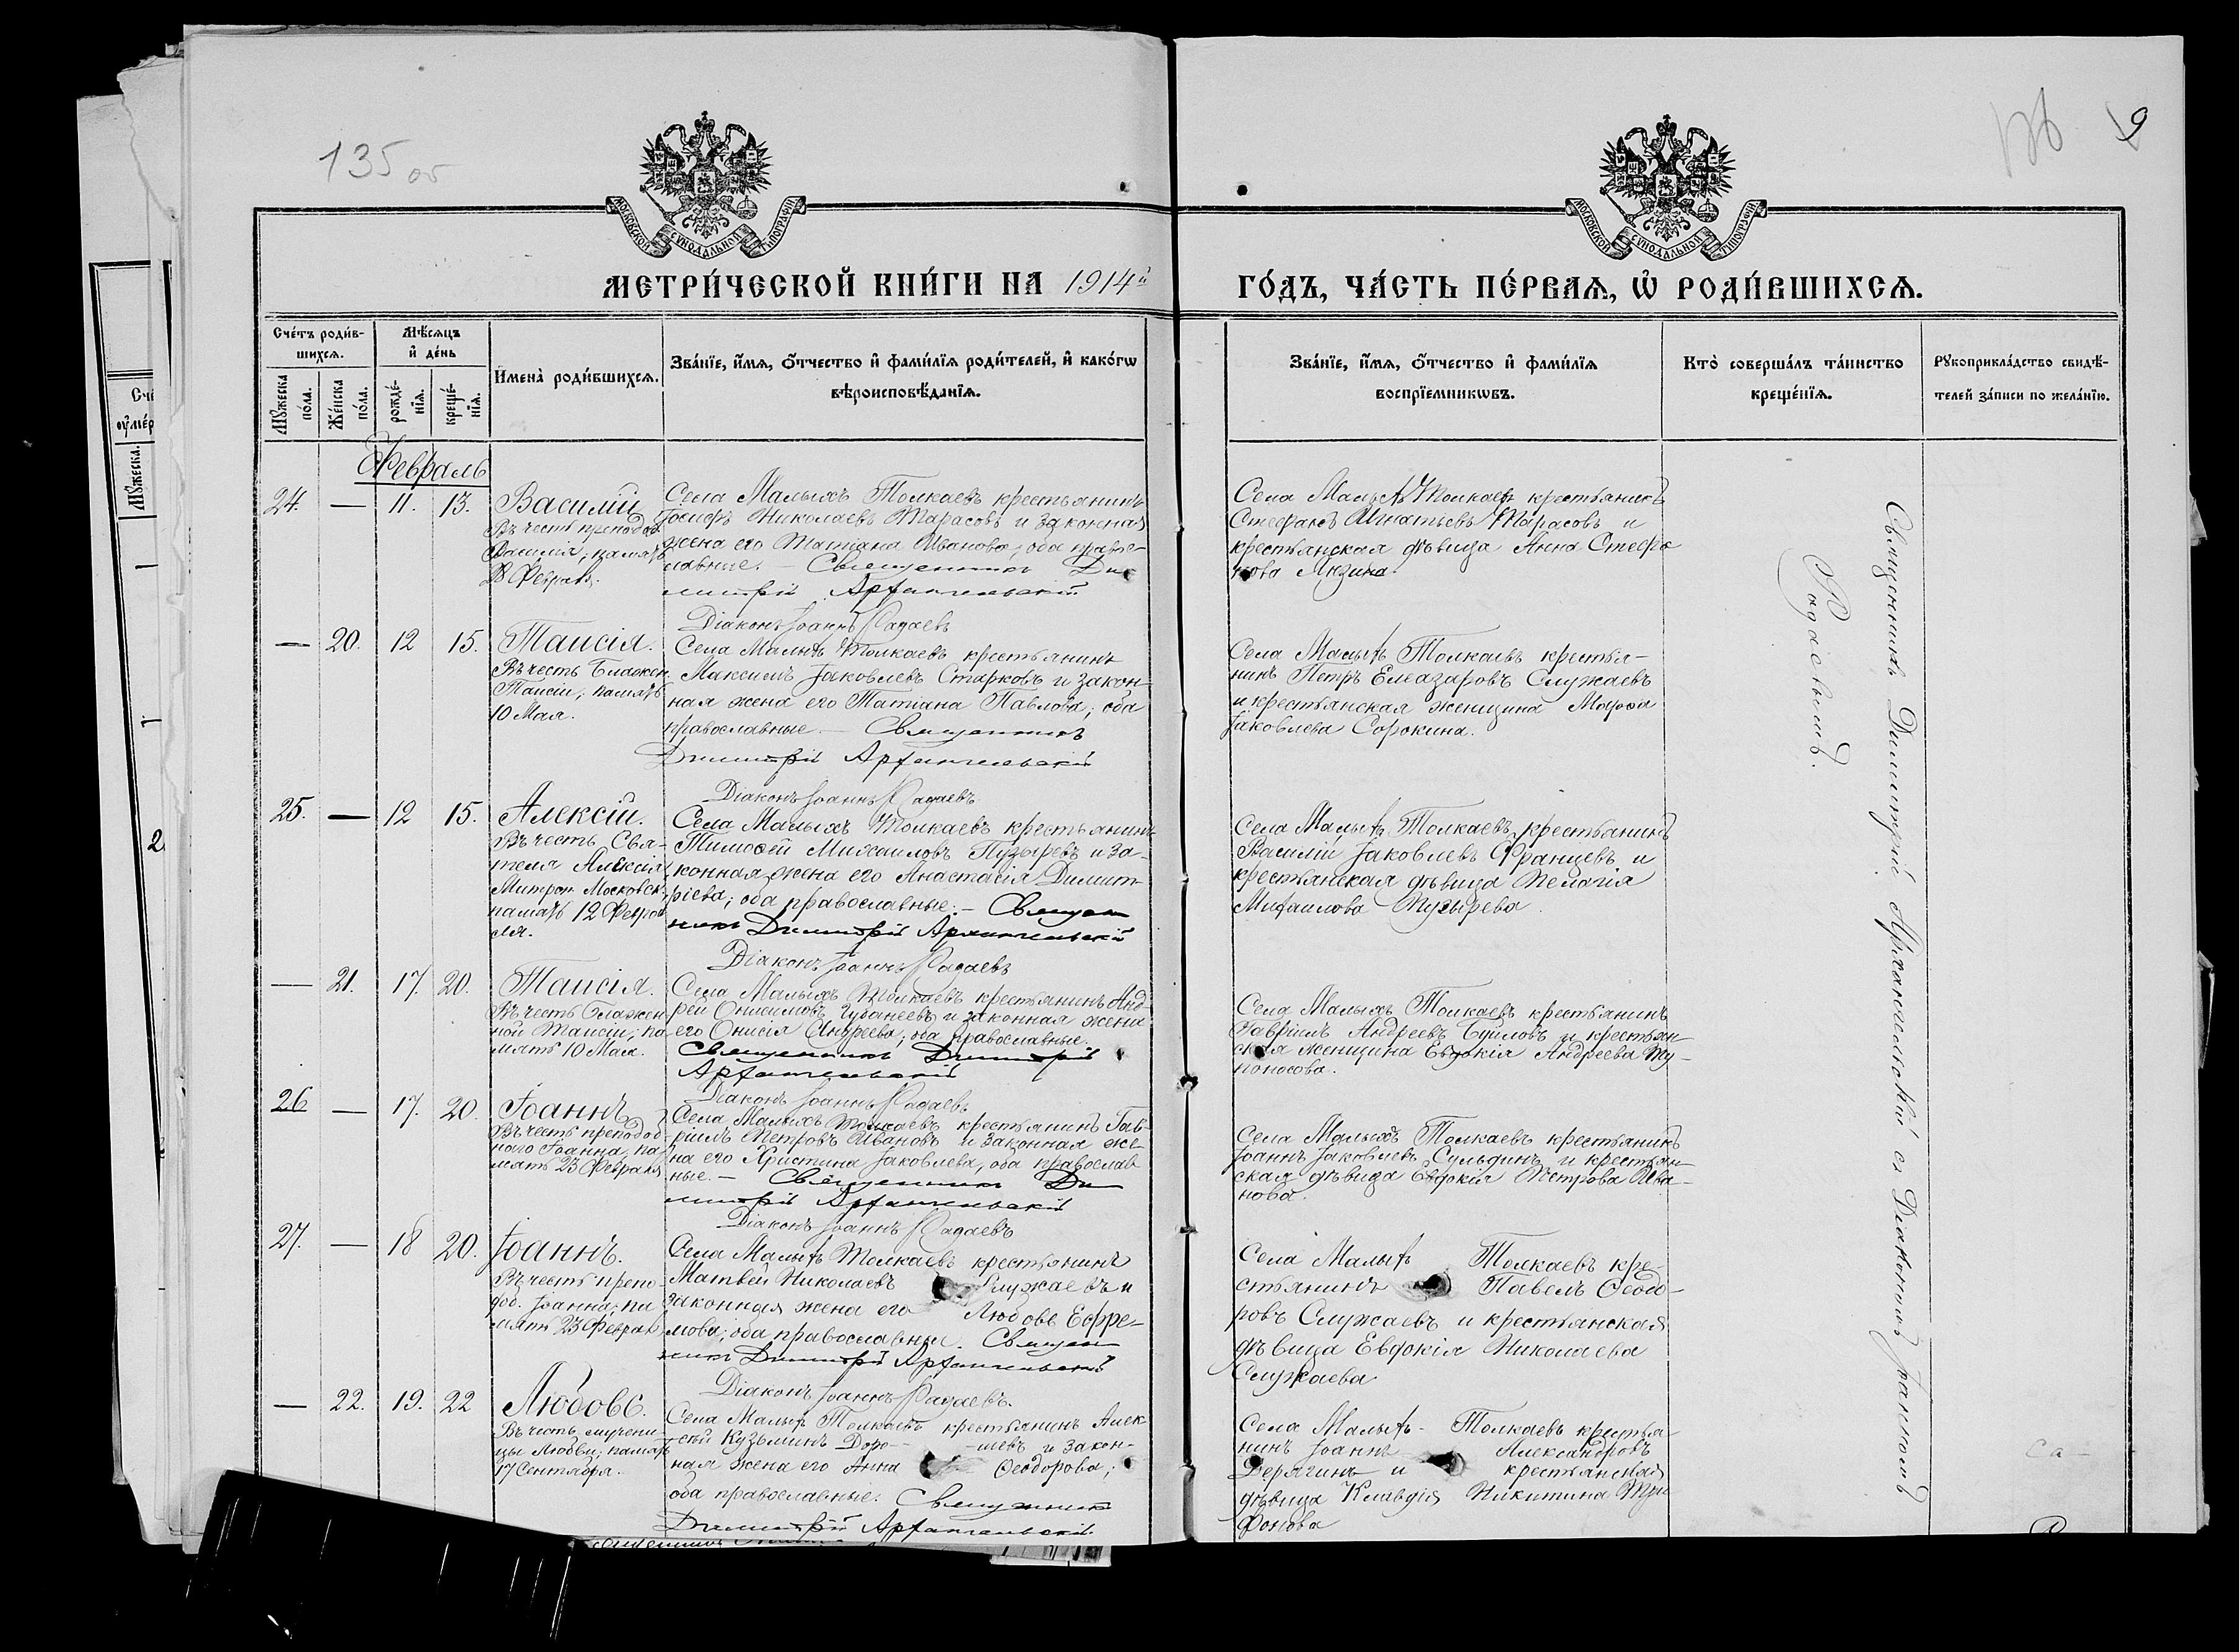 135 об
136
9
МОСКОВСКОЙ СѴНОДАЛЬНОЙ ТИПОГРАФІИ
МОСКОВСКОЙ СѴНОДАЛЬНОЙ ТИПОГРАФІИ
МЕТРИ́ЧЕСКОЙ КНИ́ГИ НА 1914й ГО́ДЪ, ЧА́СТЬ ПЕ́РВАѦ, Ѡ҆ РОДИ́ВШИХСѦ.
Сче́тъ роди́в-
шихсѧ.
Мꙋ́жеска
по́ла.
Же́нска
по́ла.
Мѣ́сѧцъ
и҆ де́нь
рожде́-
нїѧ.
креще́-
нїѧ.
И҆мена̀ роди́вшихсѧ.
Зва́нїе, и҆́мѧ, ѻ҆́тчество и҆ фами́лїѧ роди́телей, и҆ како́гѡ
вѣроисповѣ́данїѧ.
Зва́нїе, и҆́мѧ, ѻ҆́тчество и҆ фами́лїѧ
воспрїе́мникѡвъ.
Кто̀ соверша́лъ та́инство
креще́нїѧ.
Рꙋкоприкла́дство свидѣ́-
телей за́писи по жела́нїю.
Февраль
24. — 11. 13.
Василій
Въ честь преподоб.
Василія, память
28 Феврал.
Села Малыхъ Толкаевъ крестьянинъ
Іосифъ Николаевъ Тарасовъ и законная
жена его Татіана Иванова, оба право-
славные. — Священникъ Ди-
митрій Архангельскій
Діаконъ Іоаннъ Радаевъ
Села Малыхъ Толкаевъ крестьянинъ
Стефанъ Игнатьевъ Тарасовъ и
крестьянская дѣвица Анна Стефа
нова Лязина.
— 20. 12 15.
Таисія.
Въ честь Блажен.
Таисіи, память
10 Мая.
Села Малыхъ Толкаевъ крестьянинъ
Максимъ Іаковлевъ Старковъ и закон-
ная жена его Татіана Павлова; оба
православные. — Священникъ
Димитрій Архангельскій
Діаконъ Іоаннъ Радаевъ
Села Малыхъ Толкаевъ крестья-
нинъ Петръ Елеазаровъ Служаевъ
и крестьянская женщина Марѳа
Іаковлева Сорокина.
25. — 12 15.
Алексій.
Въ честь Свя-
теля Алексія
Митроп. Московск.
память 12 Февра
ля.
Села Малыхъ Толкаевъ крестьянинъ
Тимоѳей Михаиловъ Пузыревъ и за-
конная жена его Анастасія Димит-
ріева; оба православные. — Священ
никъ Димитрій Архангельскій
Діаконъ Іоаннъ Радаевъ
Села Малыхъ Толкаевъ крестьянинъ
Василій Іаковлевъ Францевъ и
крестьянская дѣвица Пелагія
Михаилова Пузырева.
— 21. 17. 20.
Таисія.
Въ честь Блажен
ной Таисіи, па-
мять 10 Мая.
Села Малыхъ Толкаевъ крестьянинъ Анд-
рей Онисимовъ Чубанеевъ и законная жена
его Онисія Андреева; оба православные.
Священникъ Димитрій
Архангельскій
Діаконъ Іоаннъ Радаевъ
Села Малыхъ Толкаевъ крестьянинъ
Гавріилъ Андреевъ Буйловъ и крестьян-
ская женщина Евдокія Андреева Ту-
поносова.
26 — 17. 20.
Іоаннъ
Въ честь преподоб-
ного Іоанна, па-
мять 23 Февраля
Села Малыхъ Толкаевъ крестьянинъ Гав-
ріилъ Петровъ Ивановъ и законная же-
на его Христина Іаковлева, оба православ
ные. — Священникъ Ди
митрій Архангельскій
Діаконъ Іоаннъ Радаевъ
Села Малыхъ Толкаевъ крестьянинъ
Іоаннъ Іаковлевъ Сульдинъ и крестьян-
ская дѣвица Евдокія Петрова Ива-
нова.
27. — 18 20.
Іоаннъ.
Въ честь препо-
доб. Іоанна, па
мять 23 Феврал.
Села Малыхъ Толкаевъ крестьянинъ
Матвей Николаевъ Служаевъ и
законная жена его Любовь Ефре-
мова; оба православныи. Священ
никъ Димитрій Архангельскій
Діаконъ Іоаннъ Радаевъ.
Села Малыхъ Толкаевъ кре-
стьянинъ Павелъ Ѳеодо-
ровъ Служаевъ и крестьянская
дѣвица Евдокія Николаева
Служаева
— 22. 19. 22
Любовь.
Въ честь мучени-
цы Любви, память
17 Сентября.
Села Малыхъ Толкаевъ крестьянинъ Алек-
сѣй Кузьминъ Доро- -шевъ и закон-
ная жена его Анна Ѳеодорова;
оба православные. Священникъ
Димитрій Архангельскій.
Села Малыхъ Толкаевъ крестья
нинъ Іоаннъ Александровъ
Дерягинъ и крестьянская
дѣвица Клавдія Никитина Три
фонова
Священникъ Димитрій Архангельскій съ Діакономъ Іоанномъ
Радаевымъ.
са-